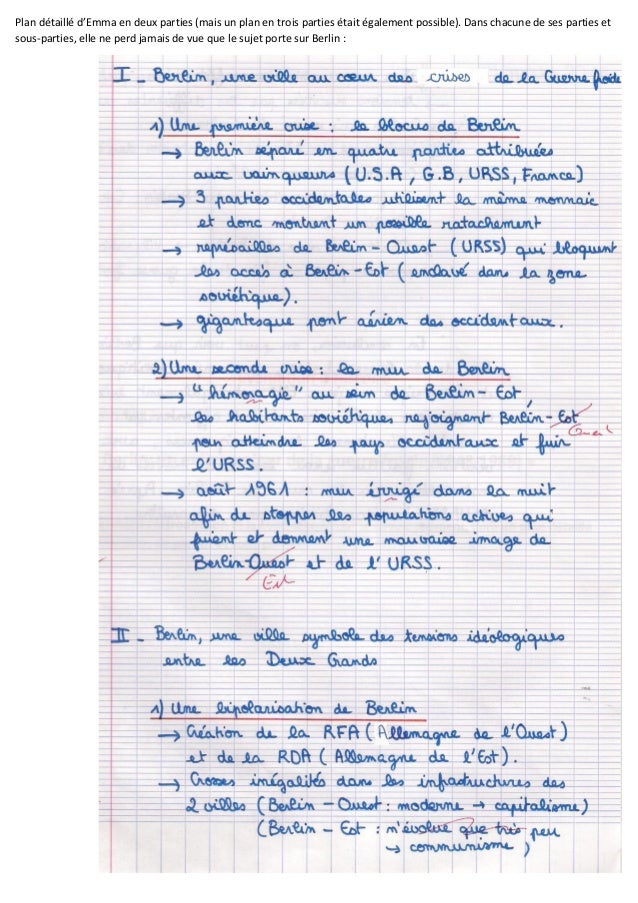 Plan détaillé d'Emma en deux parties (mais un plan en trois parties était également possible). Dans chacune de ses parties et
sous-parties, elle ne perd jamais de vue que le sujet porte sur Berlin :
I - Berlin, une ville au cœur des crises de la Guerre froide
1) Une première crise : le blocus de Berlin
→ Berlin séparé en quatre parties attribuées
aux vainqueurs (U.S.A, G.B, URSS, France)
→ 3 parties occidentales utilisent la même monnaie
et donc montrent un possible ratachement
→ représailles de Berlin-Ouest (URSS) qui bloquent
les accès à Berlin-Est (enclavé dans la zone
soviétique).
→ gigantesque pont aérien des occidentaux.
2) Une seconde crise : le mur de Berlin
→ "hémoragie" au sein de Berlin-Est,
les habitants soviétiques rejoignent Berlin-Est
Ouest
pour atteindre les pays occidentaux et fuir
l'URSS.
→ août 1961 : mur érrigé dans la nuit
afin de stopper les populations actives qui
fuient et donnent une mauvaise image de
Berlin-Ouest et de l'URSS.
Est
II - Berlin, une ville symbole des tensions idéologiques
entre les Deux Grands
1) Une bipolarisation de Berlin
→ Création de la RFA (Allemagne de l'Ouest)
et de la RDA (Allemagne de l'Est).
→ Grosses inégalités dans les infrastructures des
2 villes (Berlin-Ouest : moderne → capitalisme)
(Berlin-Est : n'évolue que très peu
→ communisme)